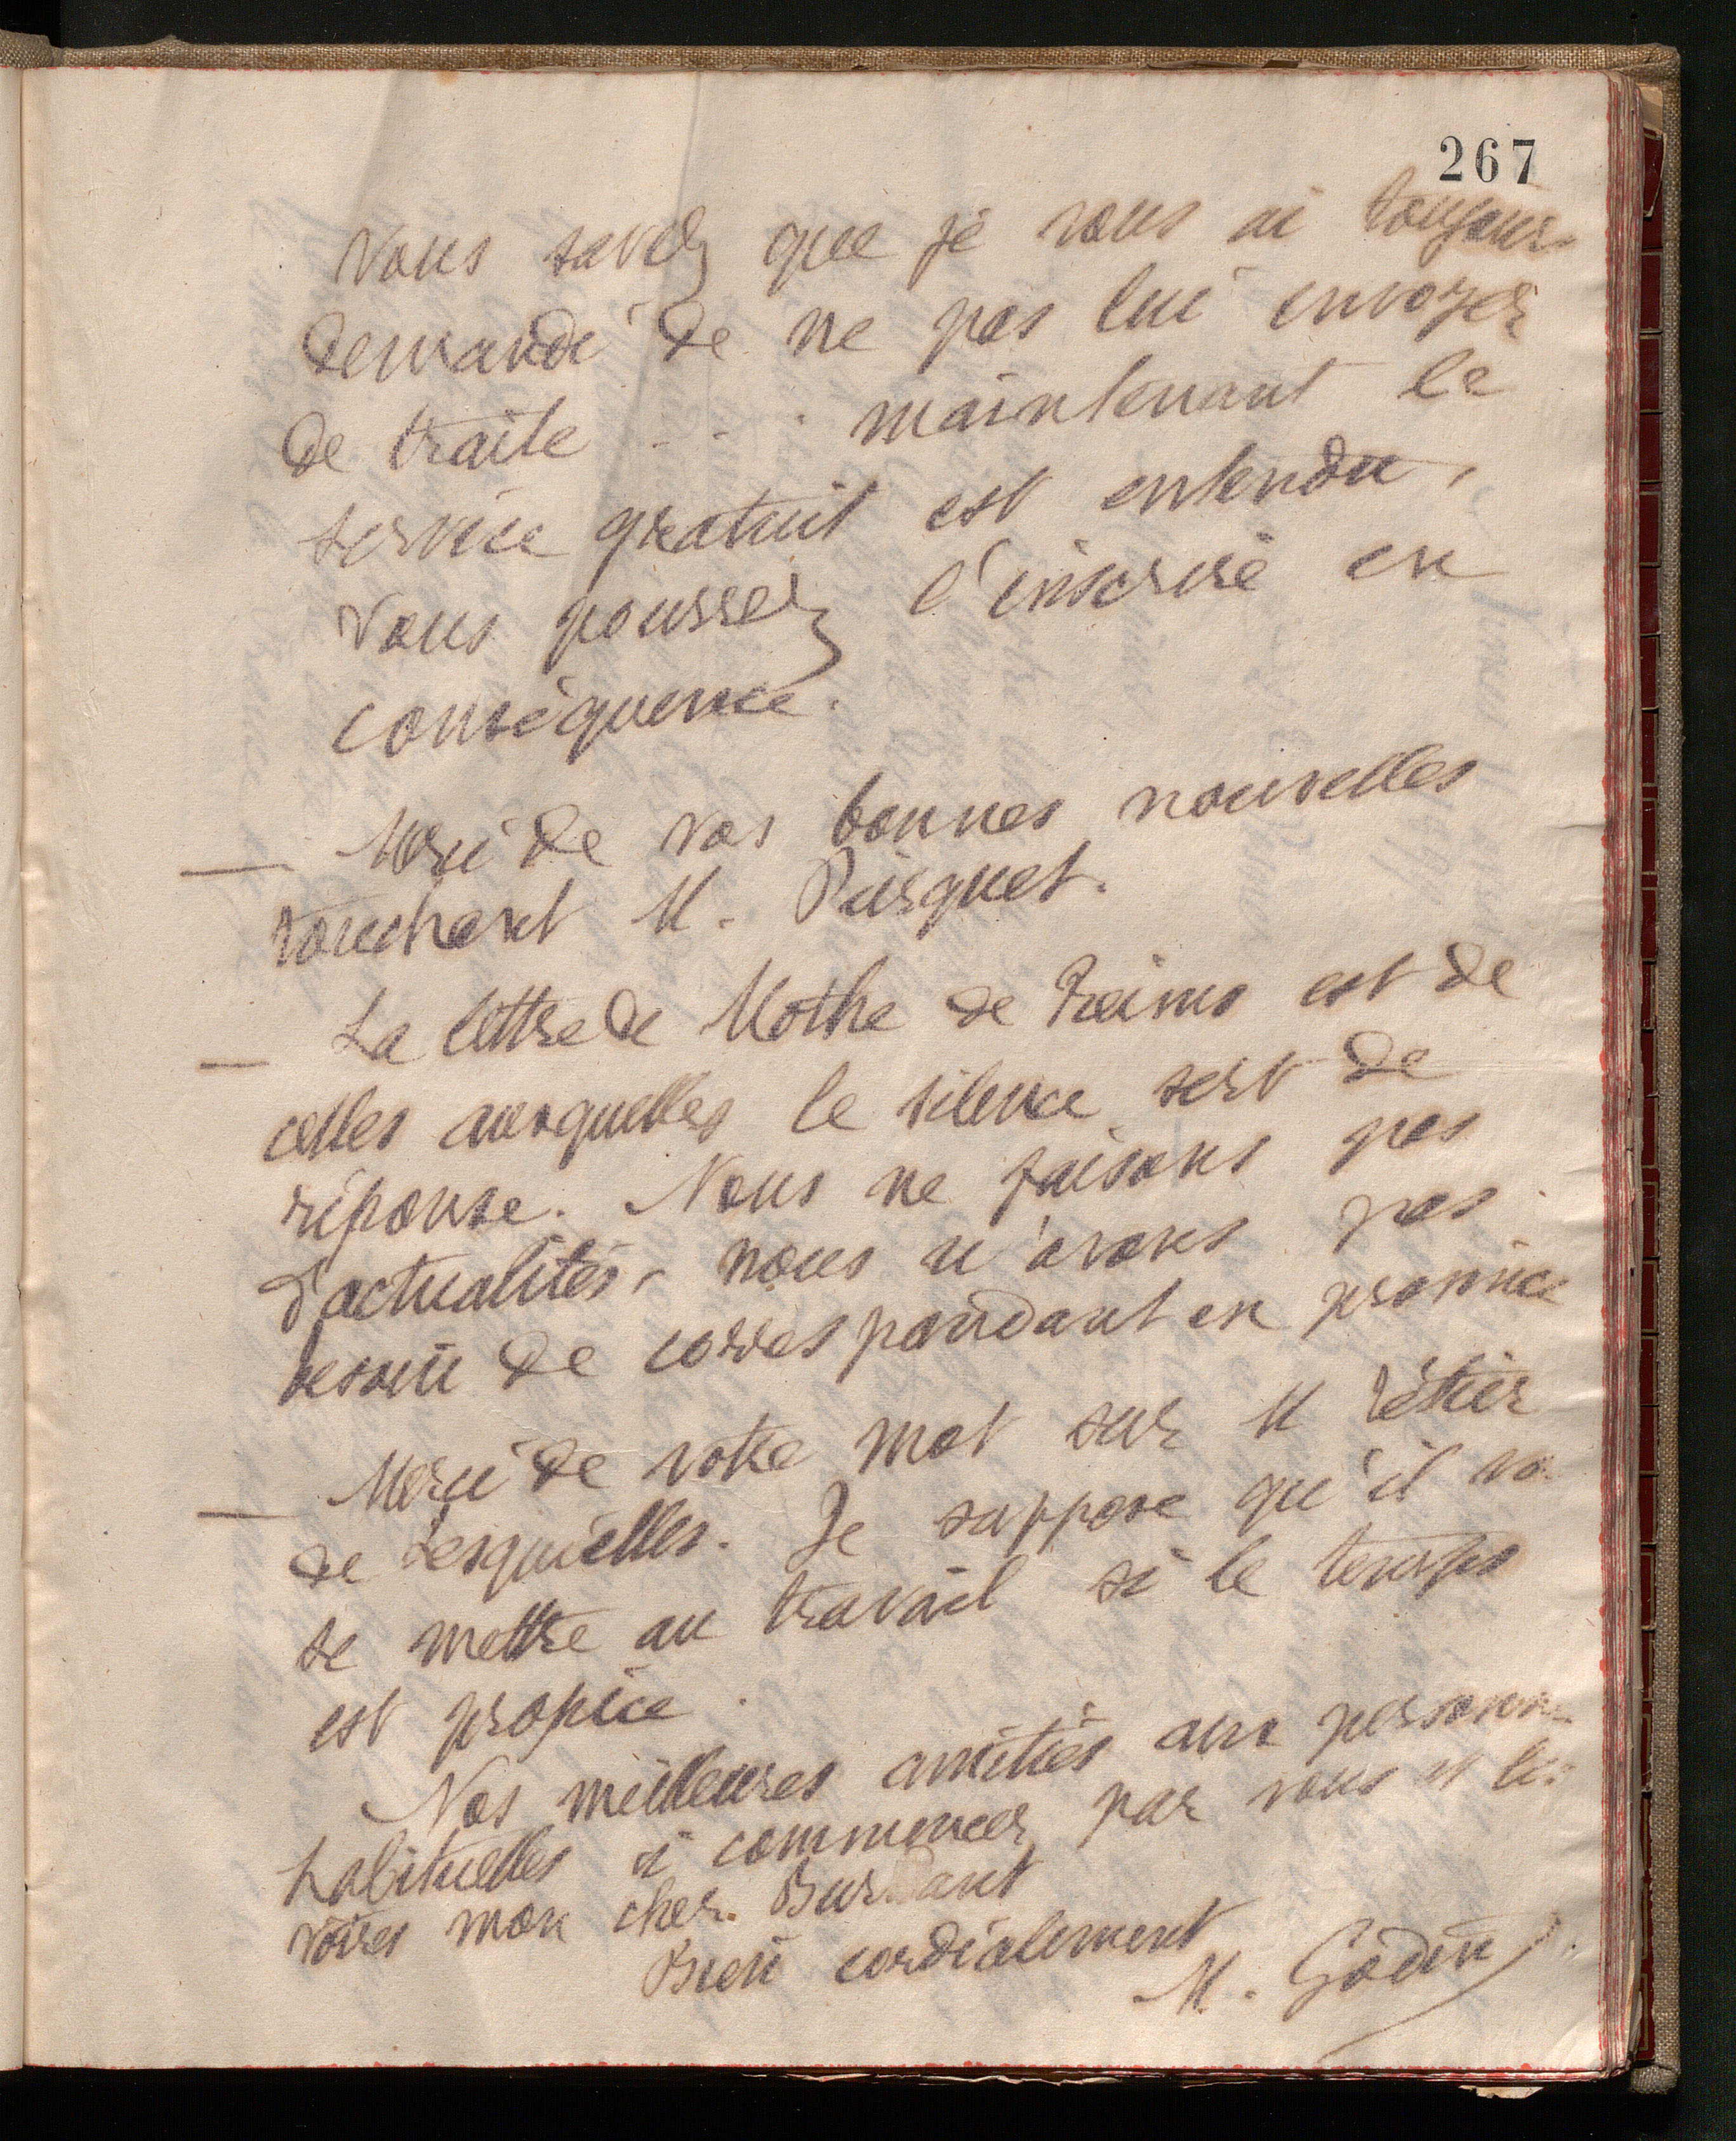 267
Vous savez que je vous ai toujours
demandé de ne pas lui envoyer
de traite . . . . maintenant le
service gratuit est entendu,
vous pourrez l'inscrire en
conséquence.
— Merci de vos bonnes nouvelles
touchant M. Puisquet.
— La lettre de Mothe de Reims est de
celles auxquelles le silence sert de
réponse. Nous ne faisons pas
d'actualités, nous n'avons pas
besoin de correspondant en province
— Merci de votre mot sur M
de Lesquielles. Je suppose qu'il va
se mettre au travail si le temps
est propice.
Nos meilleures amitiés aux personn.
habituelles à commencer par vous et les
vôtres mon cher Burdant
Bien cordialement
M. Godin